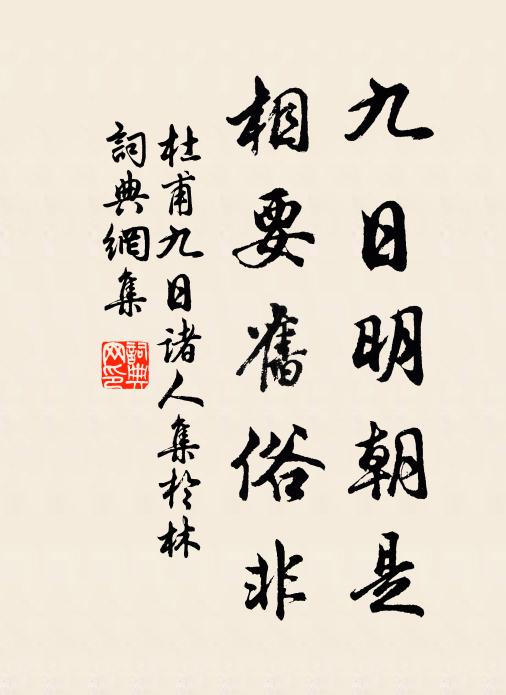 九日明朝是
相要舊俗非
杜甫九日諸人集於林
詞典網集
詞典网印